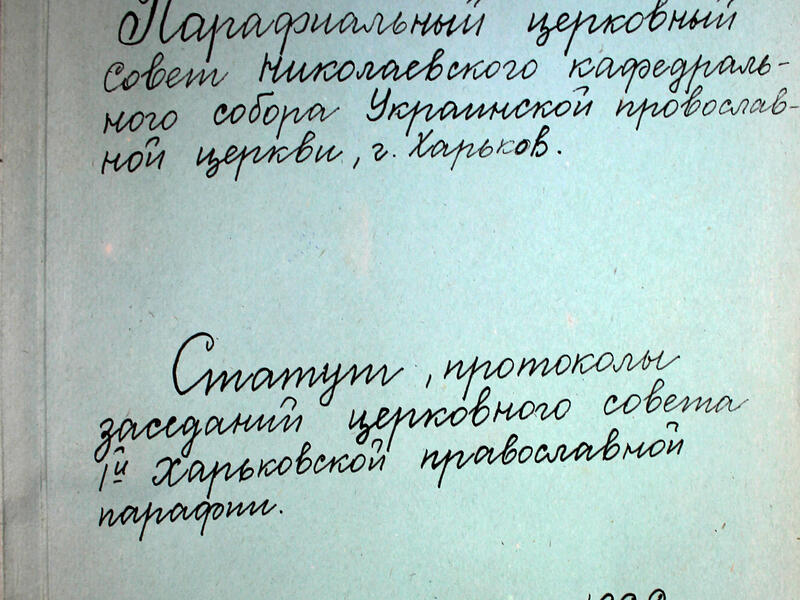 Парафиальный церковный
совет Николаевского кафедраль-
ного собора Украинской провослав-
ной церкви, г. Харьков.
Статут, протоколы
заседаний церковного совета
1й Харьковской православной
парафии.